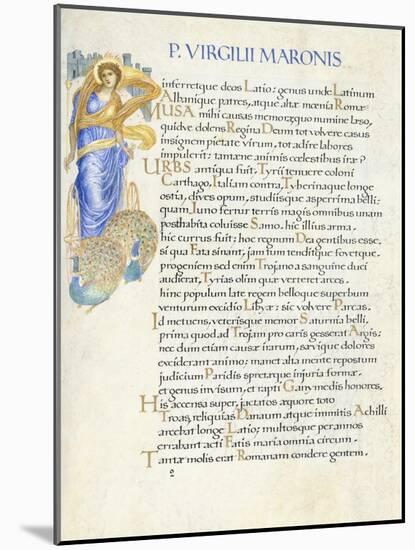 P. VIRGILII MARONIS
inferretque deos Latio: genus unde Latinum
Albanique patres, atque altæ mœnia Romæ
MUSA mihi causas memora, quo numine læso,
quidve dolens Regina Deum tot volvere casus
insignem pietate virum, tot adire labores
impulerit: tantæne animis cœlestibus iræ?
URBS antiqua fuit, Tyrii tenuere coloni
Carthago, Italiam contra, Tyberinaque longe
ostia, dives opum, studiisque asperrima belli:
quam Juno fertur terris magis omnibus unam
posthabita coluisse Samo: hic illius arma.
hic currus fuit: hoc regnum Dea gentibus esse,
si qua Fata sinant, jam tum tenditque fovetque.
progeniem sed enim Trojano a sanguine duci
audierat, Tyrias olim quæ verteret arces.
hinc populum late regem belloque superbum
venturum excidio Libyæ: sic volvere Parcas.
Id metuens, veterisque memor Saturnia belli,
prima quod ad Trojam pro caris gesserat Argis:
nec dum etiam causæ irarum, sævique dolores
exciderant animo: manet alta mente repostum
judicium Paridis spretæque injuria formæ.
et genus invisum, et rapti Ganymedis honores,
His accensa super, jactatos æquore toto
Troas, reliquias Danaum atque immitis Achilli
arcebat longe Latio; multosque per annos
errabant acti Fatis maria omnia circum.
Tantæ molis erat Romanam condere gentem.
2